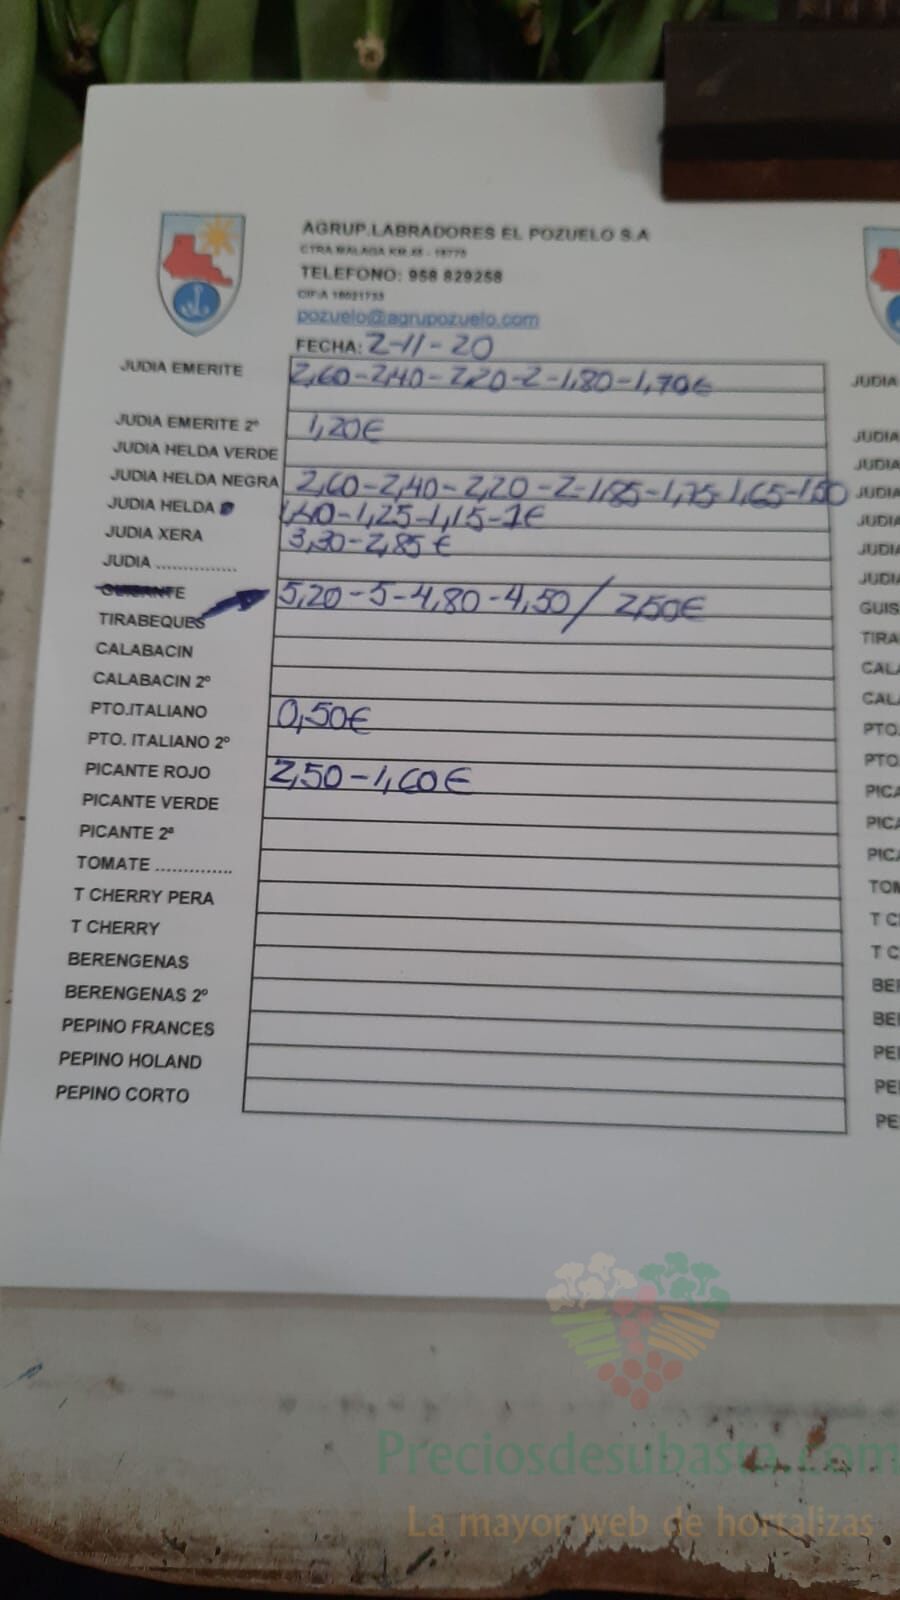 AGRUP.LABRADORES EL POZUELO S.A
TELEFONO: 958 829258
CIF:A 18021733
pozuelo@agrupozuelo.com
FECHA: 2-11-20
JUDIA EMERITE 2,60-2,40-2,20-2-1,80-1,70€
JUDIA EMERITE 2º 1,20€
JUDIA HELDA VERDE
JUDIA HELDA NEGRA 2,60-2,40-2,20-2-1,85-1,75-1,65-1,50
JUDIA HELDA 1,40-1,25-1,15-1€
JUDIA XERA 3,30-2,85€
JUDIA ...............
TIRABEQUES 5,20-5-4,80-4,50/ 2,50€
CALABACIN
CALABACIN 2º
PTO.ITALIANO 0,50€
PTO. ITALIANO 2º
PICANTE ROJO 2,50-1,60€
PICANTE VERDE
PICANTE 2ª
TOMATE ..............
T CHERRY PERA
T CHERRY
BERENGENAS
BERENGENAS 2º
PEPINO FRANCES
PEPINO HOLAND
PEPINO CORTO
JUDIA
JUDIA
JUDIA
JUDIA
JUDIA
JUDIA
JUDIA
GUIS
TIRA
CALA
CALA
PTO.
PTO.
PICA
PICA
PICA
TOM
T C
T C
BER
BER
PE
PE
PE
Preciosdesubasta.com
La mayor web de hortalizas